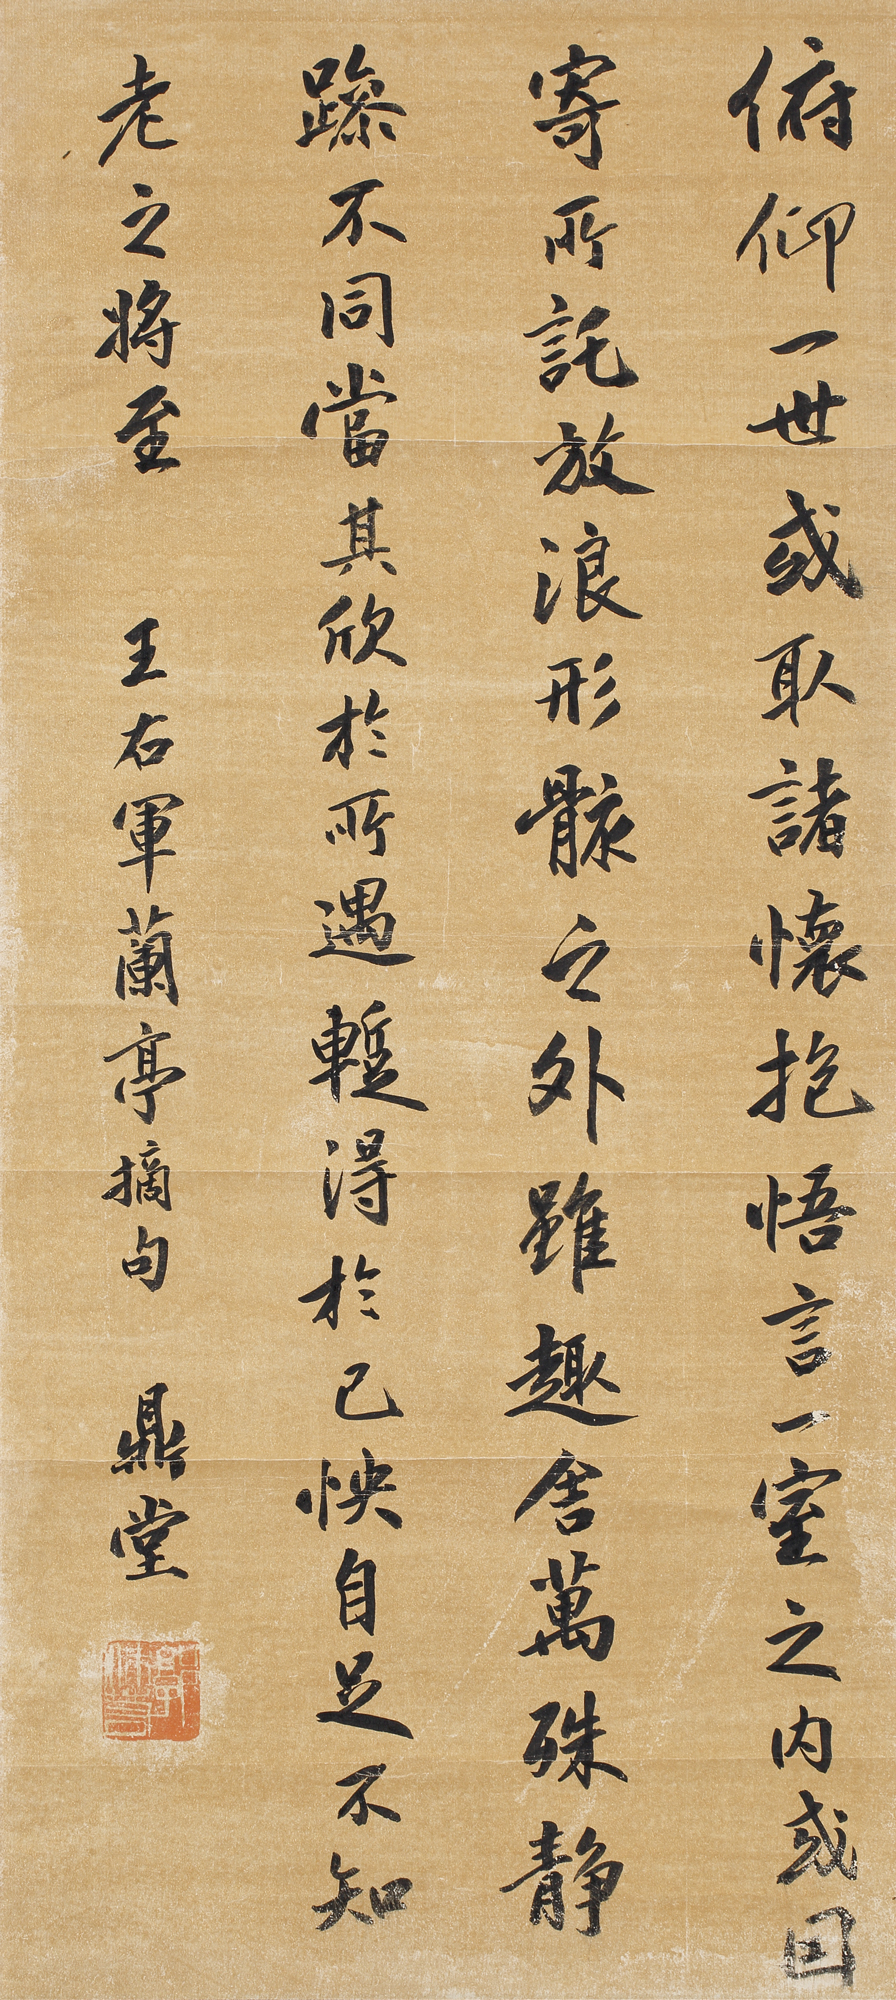 俯仰一世或取諸懷抱悟言一室之内或因
寄所託放浪形骸之外雖趣舍萬殊静
躁不同當其欣於所遇蹔得於己怏自足不知
老之將至　王右軍蘭亭摘句　鼎堂